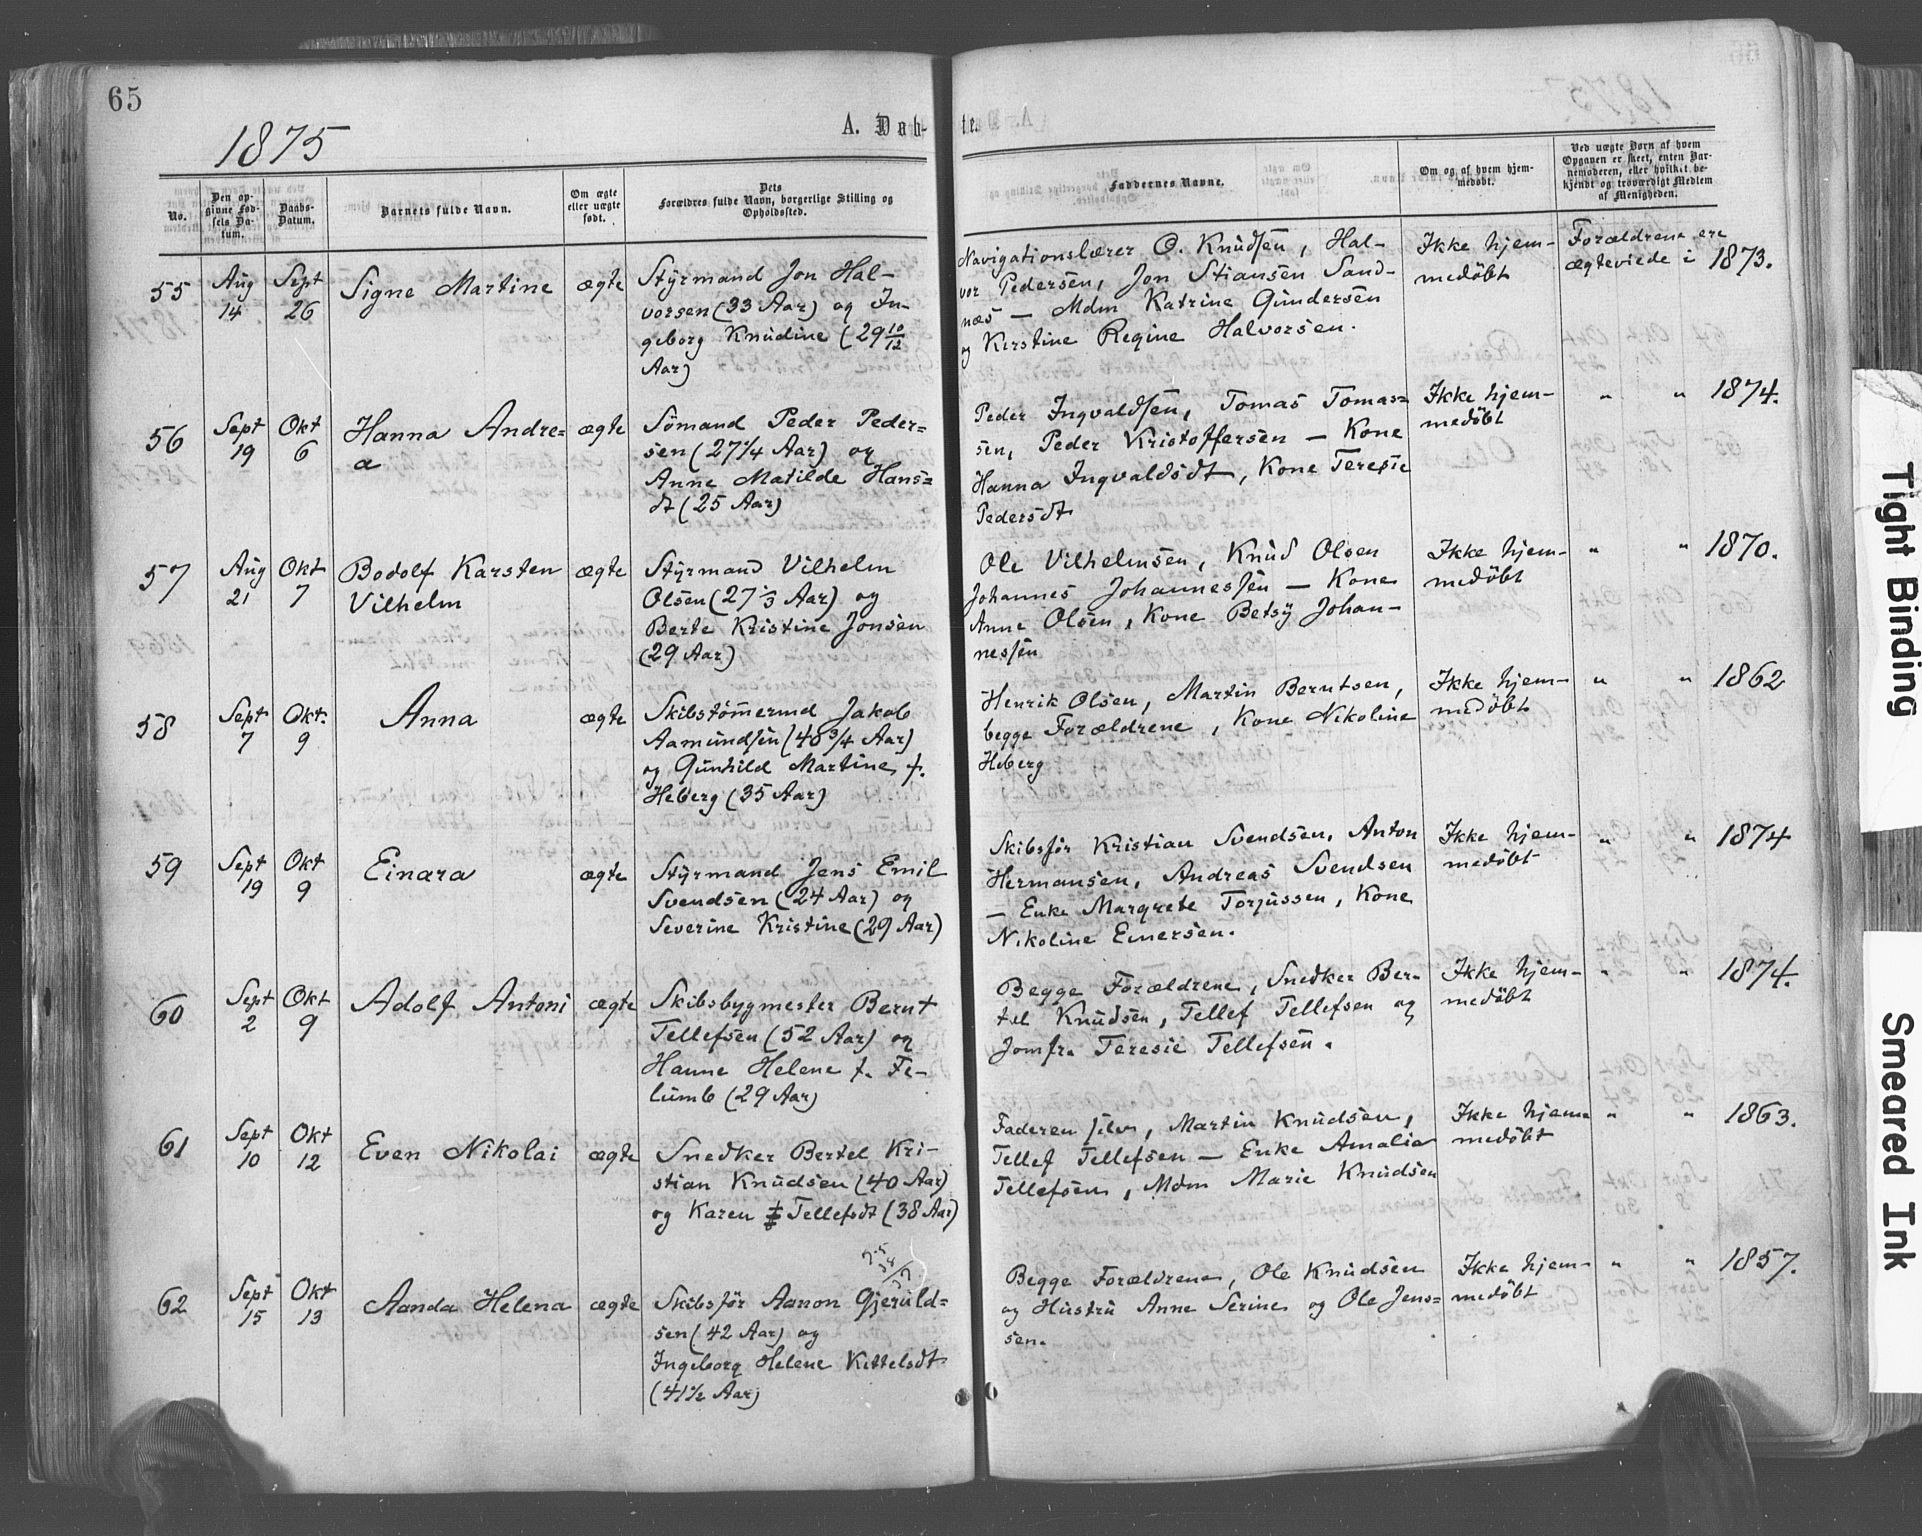 65
1875
A. Døb-
te.
No.
Den op-
givne Fød-
sels Da-
tum.
Daabs-
Datum.
Barnets fulde Navn.
Om ægte
eller uægte
født.
Dets
Forældres fulde Navn, borgerlige Stilling og
Opholdssted.
Faddernes Navne.
Om og af hvem hjem-
medøbt.
Ved uægte Børn af hvem
Opgaven er skeet, enten Bar-
nemoderen, eller hvilket be-
kjendt og troværdigt Medlem
af Menigheden.
55
Aug
14
Sept
26
Signe Martine
ægte
Styrmand Jon Hal-
vorsen (33 Aar) og In-
geborg Knudine (29 10/12
Aar)
Navigationslærer O. Knudsen, Hal-
vor Pedersen, Jon Stiansen Sand-
næs — Mdm Katrine Gundersen
og Kerstine Regine Halvorsen.
Ikke hjem-
medøbt
Forældrene ere
ægteviede i 1873.
56
Sept
19
Okt
6
Hanna Andre=
a
ægte
Sömand Peder Peder=
sen (27 1/4 Aar) og
Anne Matilde Hans=
dt (25 Aar)
Peder Ingvaldsen, Tomas Tomas=
sen, Peder Kristoffersen — Kone
Hanna Ingvaldsdt, Kone Teresie
Pedersdt
Ikke hjem-
medøbt
" " 1874.
57
Aug
21
Okt
7
Bodolf Karsten
Vilhelm
ægte
Styrmand Vilhelm
Olsen (27 1/3 Aar) og
Berte Kristine Jonsen
(29 Aar)
Ole Vilhelmsen, Knud Olsen
Johannes Johannessen — Kone
Anne Olsen, Kone Betsy Johan-
nessen
Ikke hjem-
medøbt
" " 1870.
58
Sept
7
Okt.
9
Anna
ægte
Skibstömermd Jakob
Aamundsen (40 3/4 Aar)
og Gunhild Martine f.
Heberg (35 Aar)
Henrik Olsen, Martin Berntsen,
begge Forældrene, Kone Nikoline
Heberg
Ikke hjem-
medøbt
" " 1862
59
Sept
19
Okt
9
Einara
ægte
Styrmand Jens Emil
Svendsen (24 Aar) og
Severine Kristine (29 Aar)
Skibsfør Kristian Svendsen, Anton
Hermansen, Andreas Svendsen
— Enke Margrete Torjussen, Kone
Nikoline Einersen.
Ikke hjem-
medøbt
" " 1874
60
Sept
2
Okt
9
Adolf Antoni
ægte
Skibsbygmester Bernt
Tellefsen (52 Aar) og
Hanne Helene f. Fe-
lumb (29 Aar)
Begge Forældrene, Snedker Ber-
tel Knudsen, Tellef Tellefsen og
Jomfr. Teresie Tellefsen.
Ikke hjem-
medøbt
" " 1874.
61
Sept
10
Okt
12
Even Nikolai
ægte
Snedker Bertel Kri-
stian Knudsen (40 Aar)
og Karen Tellefsdt (38 Aar)
Faderen selv, Martin Knudsen,
Tellef Tellefsen — Enke Amalia
Tellefsen, Mdm Marie Knudsen
Ikke hjem-
medøbt
" " 1863.
62
Sept
15
Okt
13
Aanda Helena
ægte
Skibsfør Aanon Gjeruld=
sen (42 Aar) og
Ingeborg Helene Kittelsdt
(41 1/2 Aar)
Begge Forældrene, Ole Knudsen
og Hustru Anne Serine og Ole Jens=
sen.
Ikke hjem-
medøbt
" " 1857.
Tight Binding
Smeared Ink